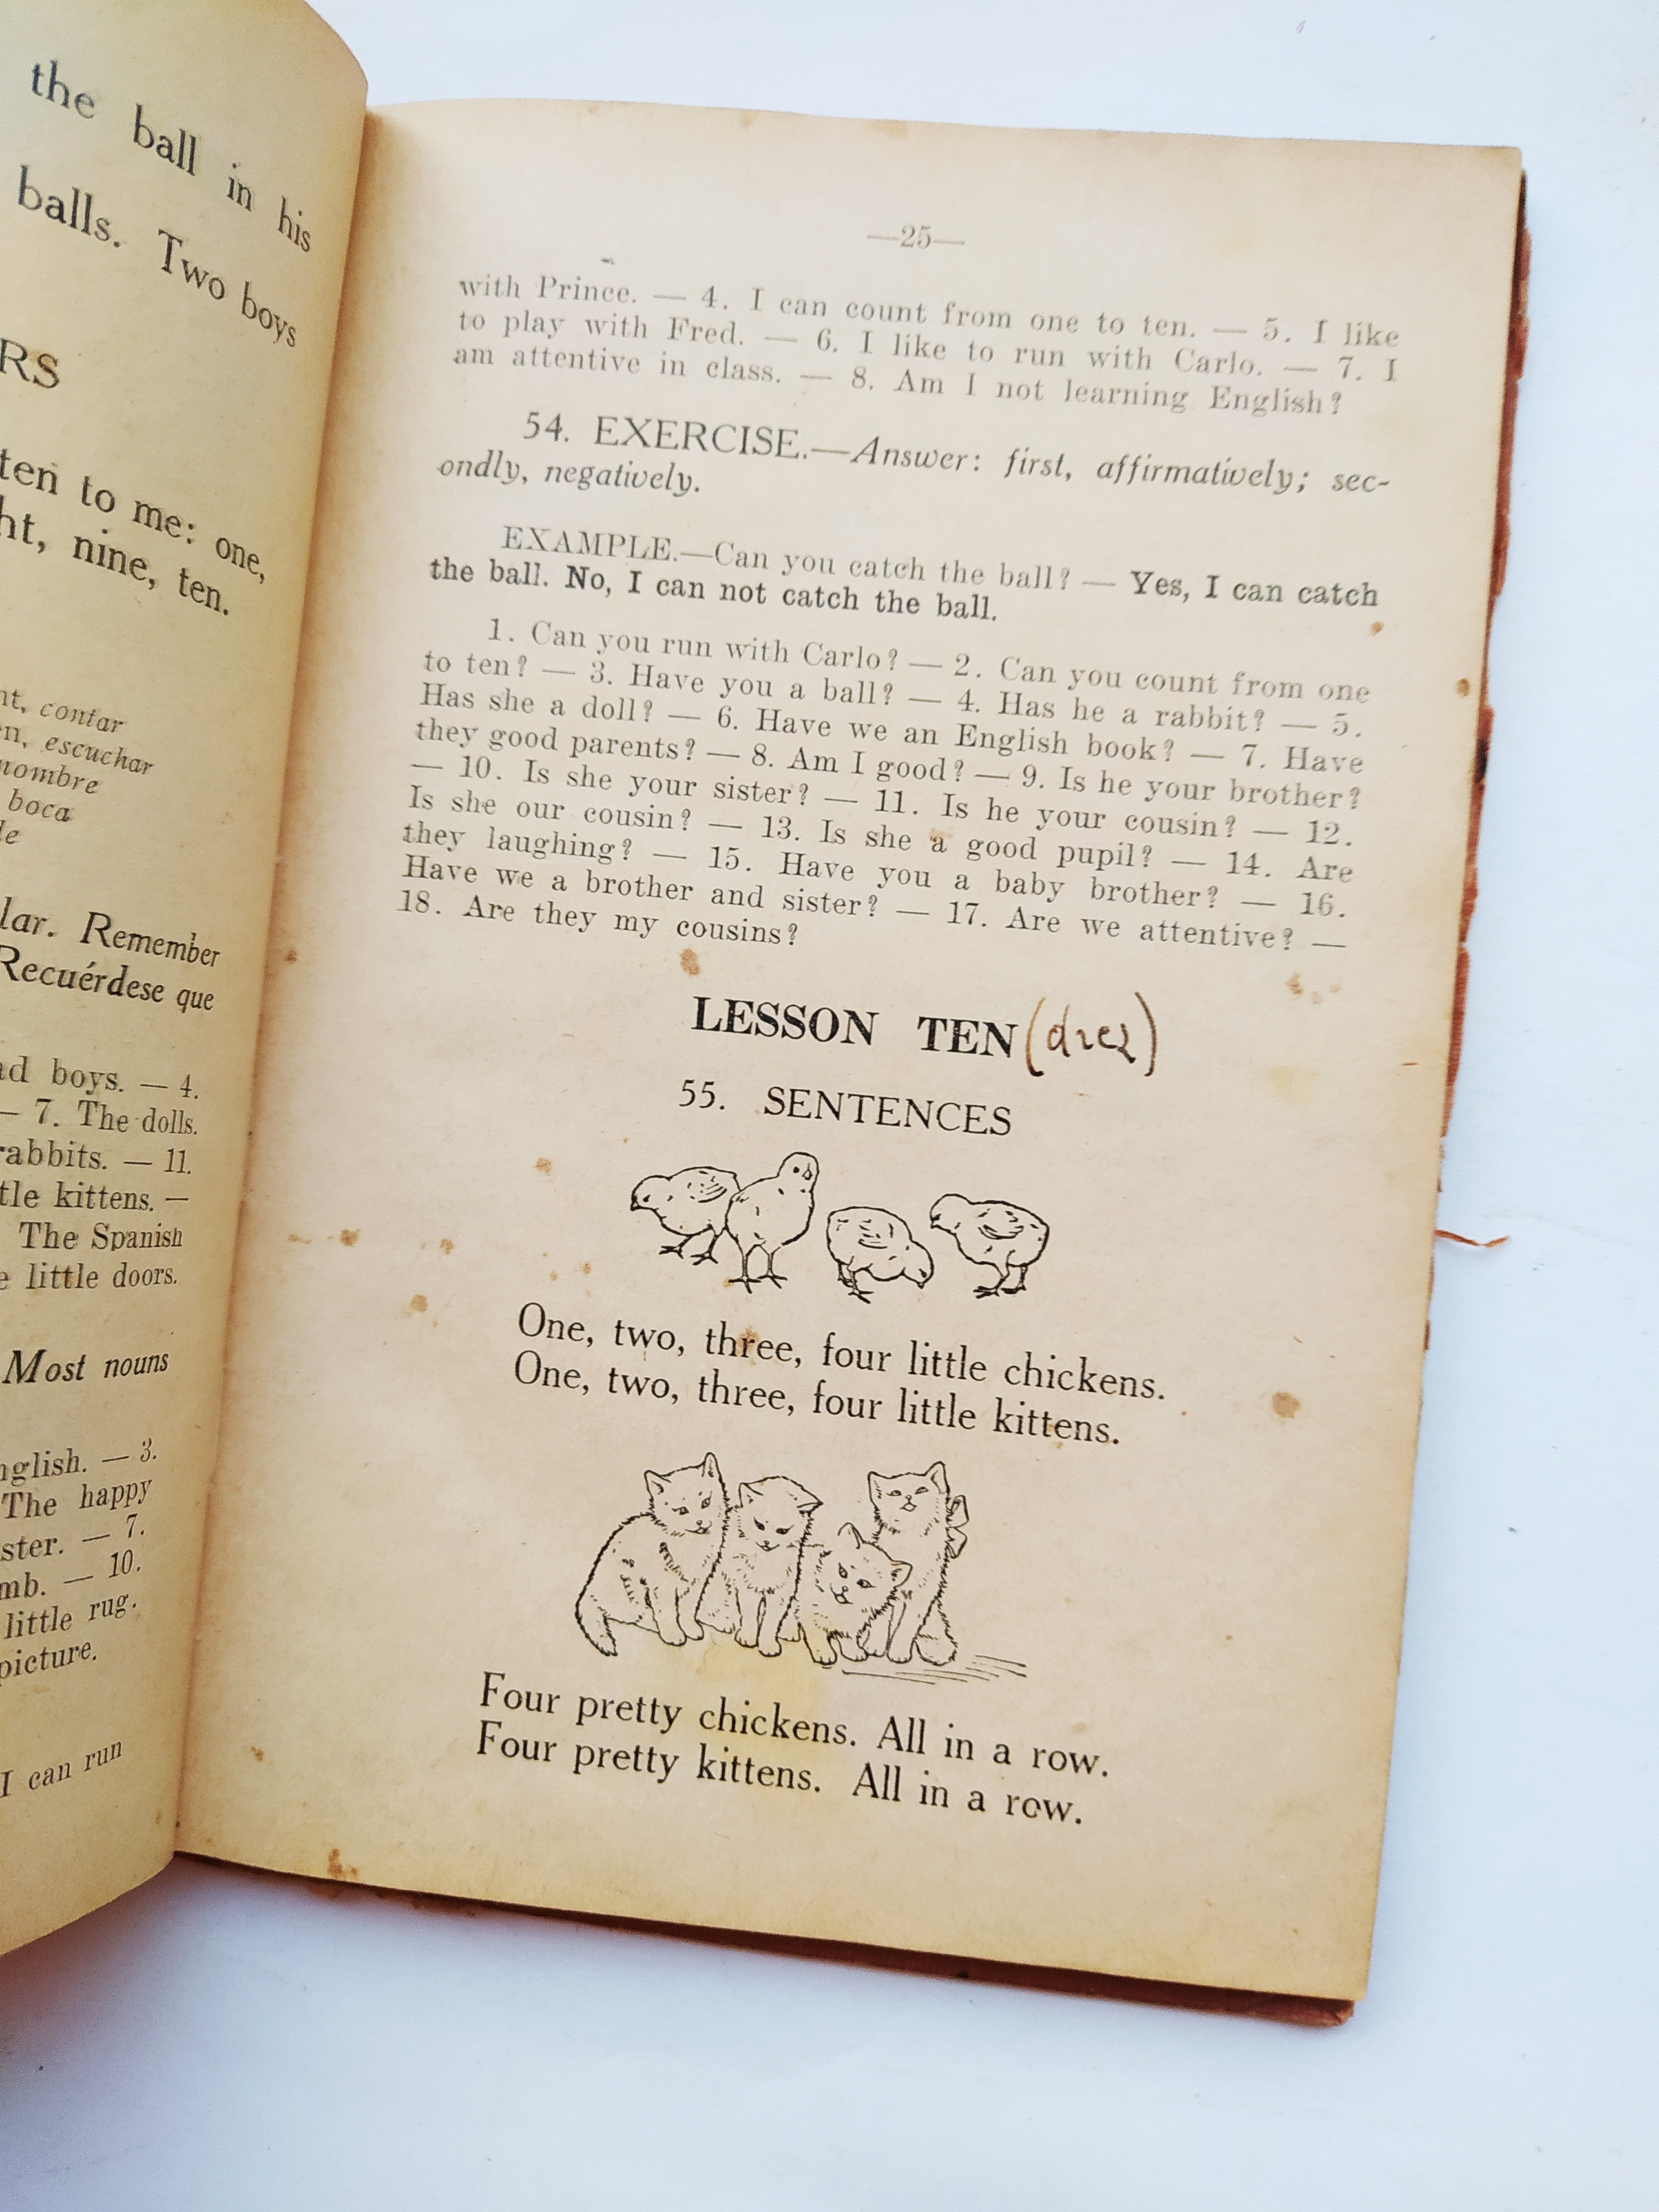 the ball in his
balls. Two boys
RS
ten to me: one,
ht, nine, ten.
nt, contar
en, escuchar
nombre
boca
le
lar. Remember
Recuérdese que
ad boys. — 4.
— 7. The dolls.
rabbits. — 11.
tle kittens. —
The Spanish
e little doors.
Most nouns
nglish. — 3.
The happy
ster. — 7.
mb. — 10.
little rug.
picture.
I can run
—25—
with Prince. — 4. I can count from one to ten. — 5. I like
to play with Fred. — 6. I like to run with Carlo. — 7. I
am attentive in class. — 8. Am I not learning English?
54. EXERCISE.—Answer: first, affirmatively; sec-
ondly, negatively.
EXAMPLE.—Can you catch the ball? — Yes, I can catch
the ball. No, I can not catch the ball.
1. Can you run with Carlo? — 2. Can you count from one
to ten? — 3. Have you a ball? — 4. Has he a rabbit? — 5.
Has she a doll? — 6. Have we an English book? — 7. Have
they good parents? — 8. Am I good? — 9. Is he your brother?
— 10. Is she your sister? — 11. Is he your cousin? — 12.
Is she our cousin? — 13. Is she a good pupil? — 14. Are
they laughing? — 15. Have you a baby brother? — 16.
Have we a brother and sister? — 17. Are we attentive? —
18. Are they my cousins?
LESSON TEN (diez)
55. SENTENCES
One, two, three, four little chickens.
One, two, three, four little kittens.
Four pretty chickens. All in a row.
Four pretty kittens. All in a row.